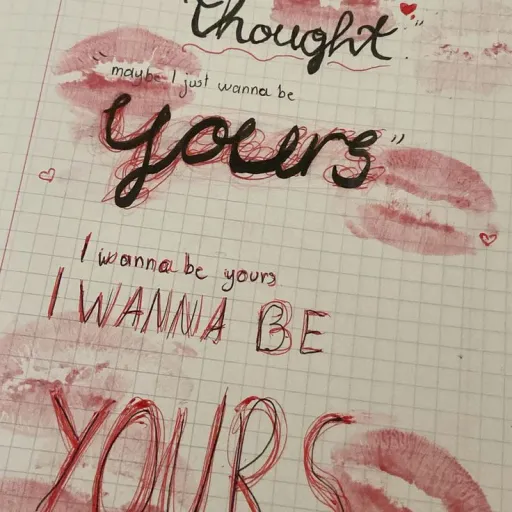 thought"
"maybe I just wanna be
yours"
I wanna be yours
I WANNA BE
YOURS